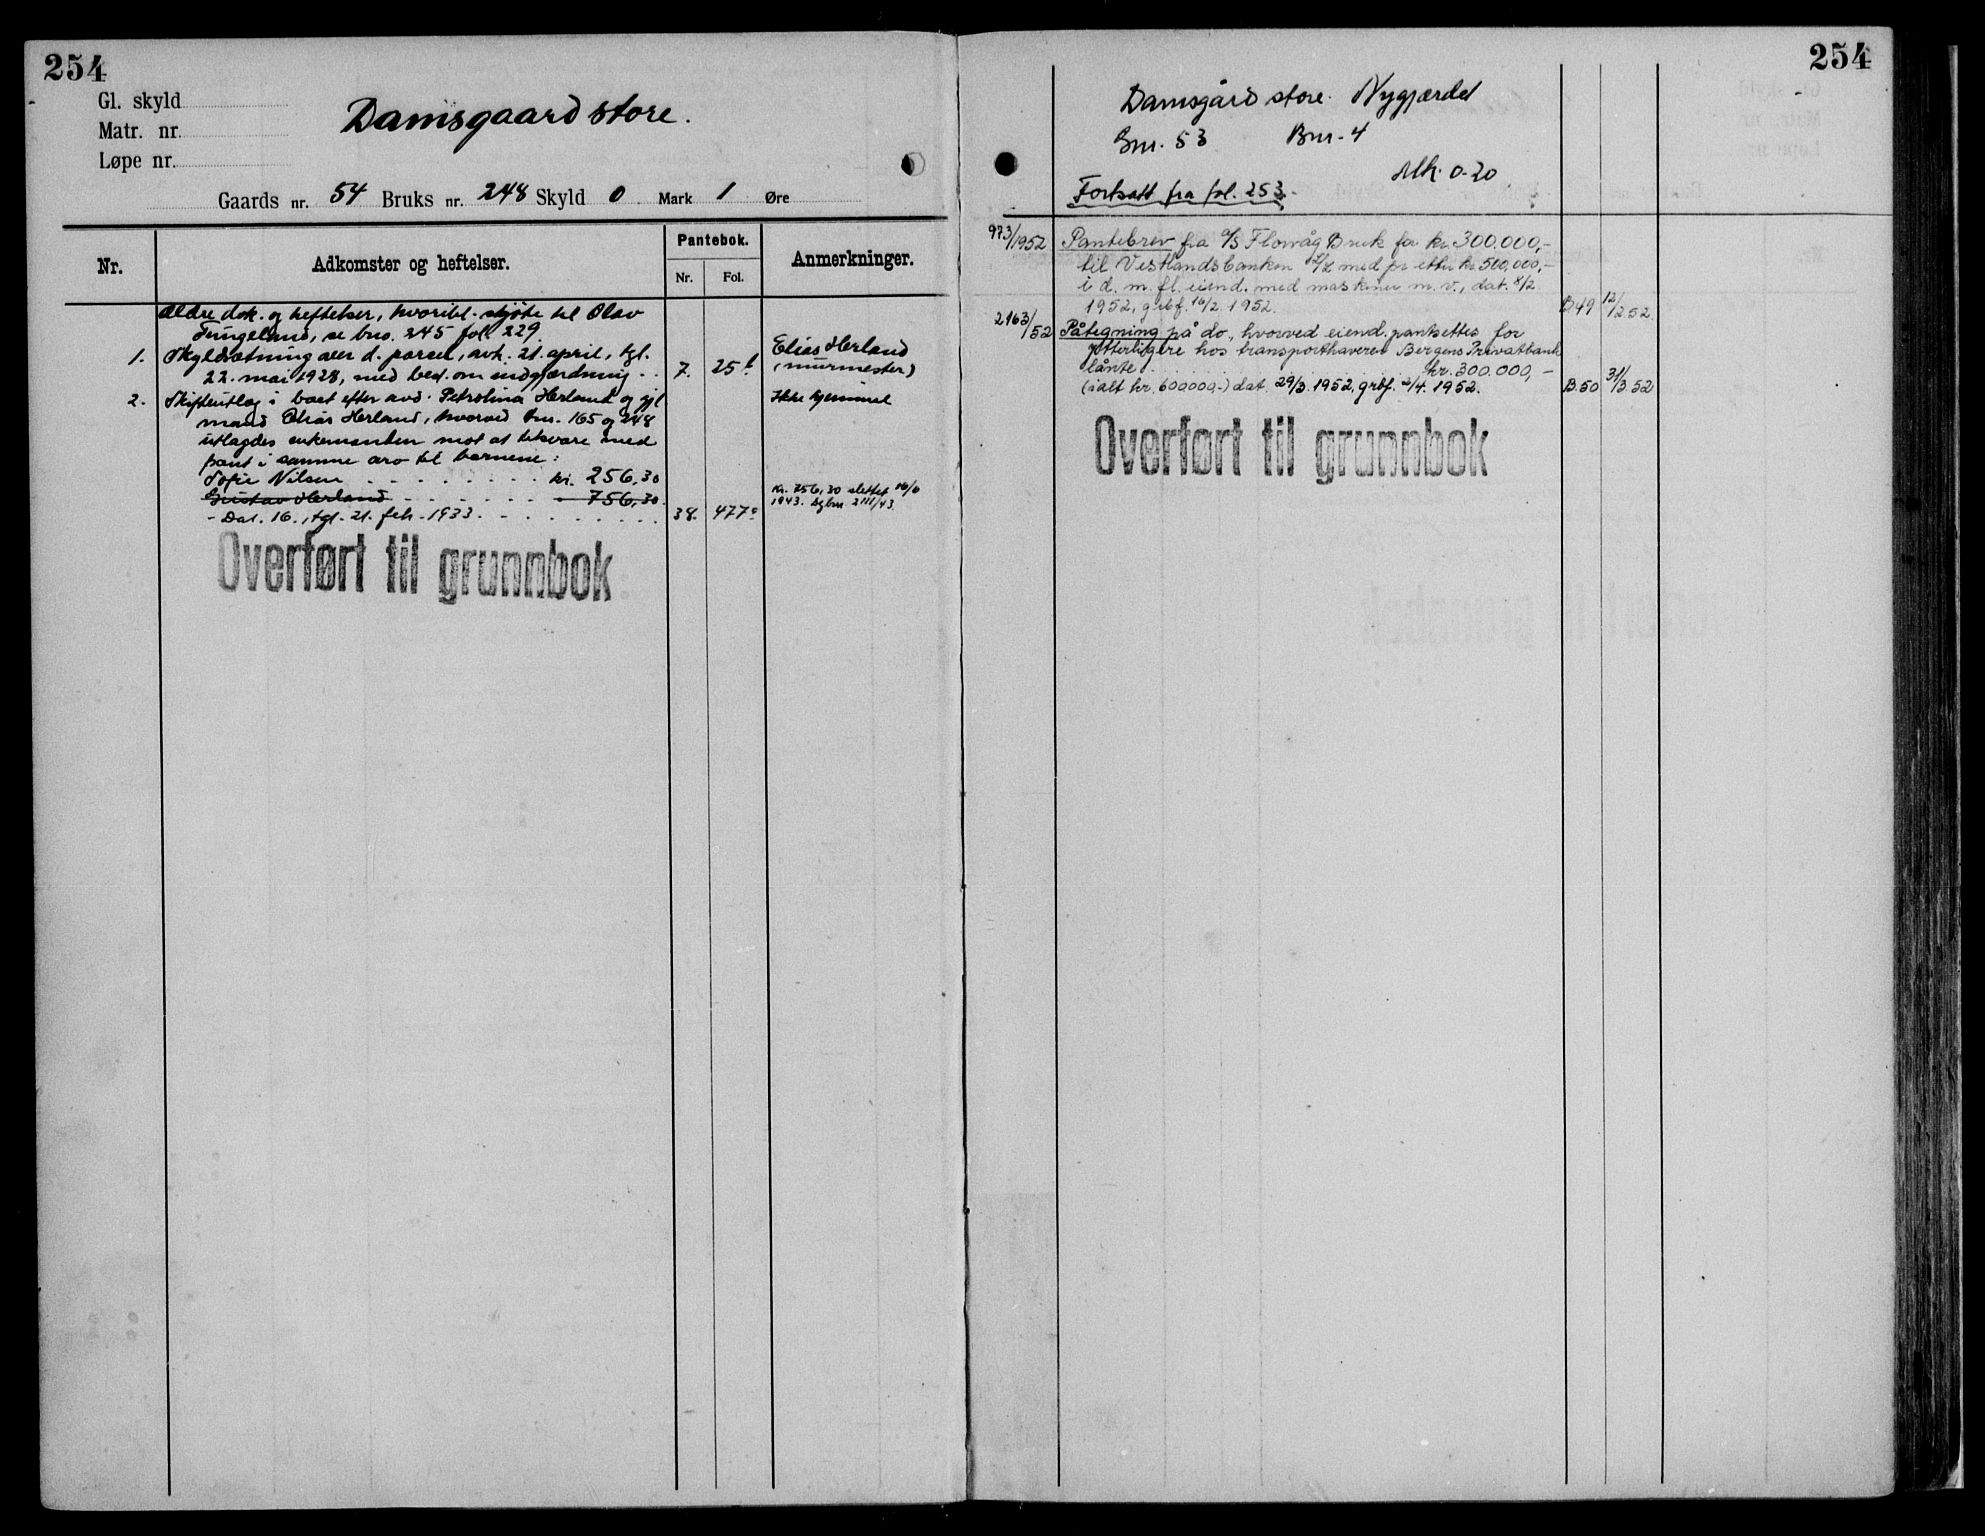 254
Gl. skyld
Matr. nr.
Løpe nr.
Damsgaard store.
Gaards nr. 54 Bruks nr. 248 Skyld 0 Mark 1 Øre
Nr.
Adkomster og heftelser.
Pantebok.
Nr. Fol.
Anmerkninger.
Ældre dok. og heftelser, hvoribl. skjøte til Olav
Tungeland, se bno. 245 fol. 229.
1. Skyldsætning over d. parsel, avh. 21. april, tgl.
22. mai 1928, med bed. om indgjærdning . . 7. 25
Elias Herland
(murmester)
2. Skifteutlæg i boet efter avd. Petrolina Herland og gjl.
mand Elias Herland, hvorved bnr. 165 og 248
utlagdes enkemanden mot at tilsvare med
pant i samme arv til barnene:
Sofie Nilsen . . . . . . . . . kr. 256,30
Gustav Herland - - - - - - - 756,30.
- Dat. 16., tgl. 21. feb. 1933. - - - - - - - - - 38. 477
Ikke hjemmel
Kr. 756,30 slettet 16/6
1943. Dgbnr. 2111/43.
Overført til grunnbok
254
Damsgård store. Nygjærdet
Gnr. 53 Bnr. 4
Mk. 0-20
Fortsatt fra fol. 253.
973/1952 Pantebrev fra A/S Florvåg Bruk for kr. 300.000,-
til Vestlandsbanken A/L med pr. etter kr. 500.000,-
i d. m. fl. eiend. med maskiner m. v., dat. 8/2
1952, grbf. 16/2 1952. B49 12/2 52.
2163/52 Påtegning på do., hvorved eiend. pantsettes for
ytterligere hos transporthaveren Bergens Privatbank
lånte . . . . . . . . . . kr. 300.000,-
(ialt kr. 600000,-) dat. 29/3. 1952, grbf. 2/4. 1952. B50 31/3 52
Overført til grunnbok